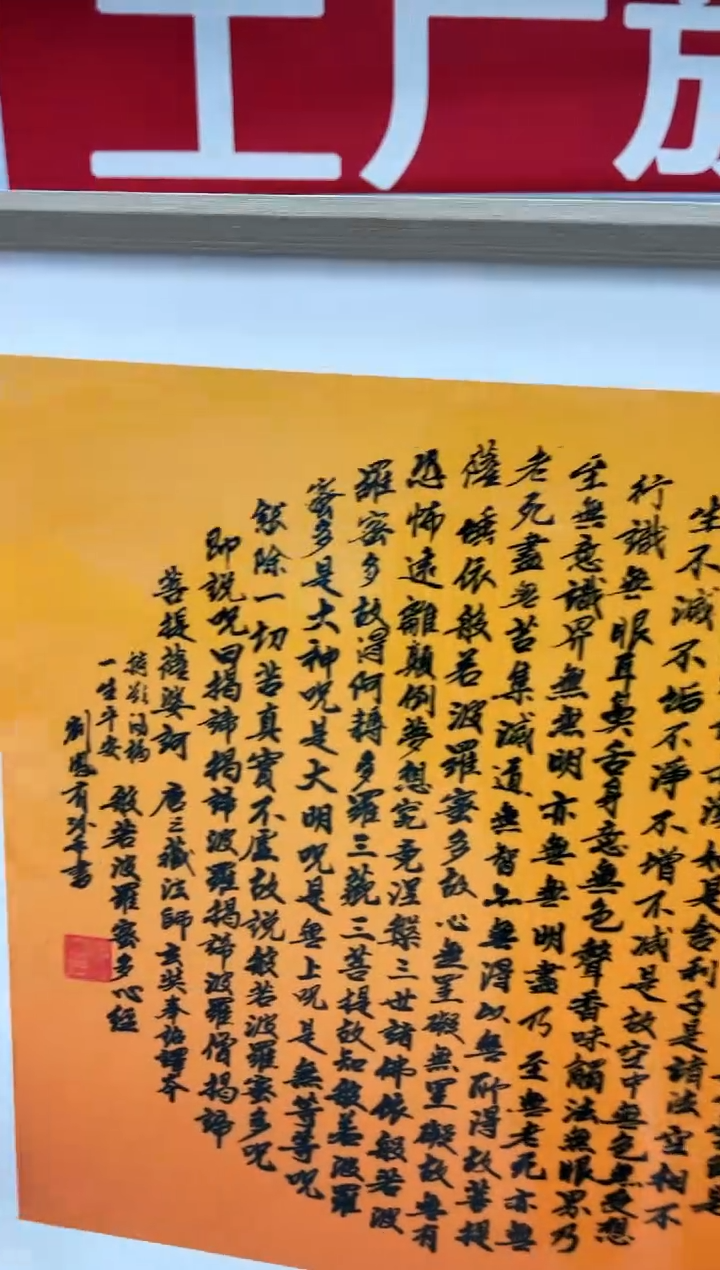 工厂
是舍利子是諸法空相不
生不滅不垢不淨不增不減是故空中無色無受想
行識無眼耳鼻舌身意無色聲香味觸法無眼界乃
至無意識界無無明亦無無明盡乃至無老死亦無
老死盡無苦集滅道無智亦無得以無所得故菩提
薩埵依般若波羅蜜多故心無罣礙無罣礙故無有
恐怖遠離顛倒夢想究竟涅槃三世諸佛依般若波
羅蜜多故得阿耨多羅三藐三菩提故知般若波羅
蜜多是大神呪是大明呪是無上呪是無等等呪
能除一切苦真實不虛故說般若波羅蜜多呪
即說呪曰揭諦揭諦波羅揭諦波羅僧揭諦
菩提薩婆訶 唐三藏法師玄奘奉詔譯
般若波羅蜜多心經
一生平安